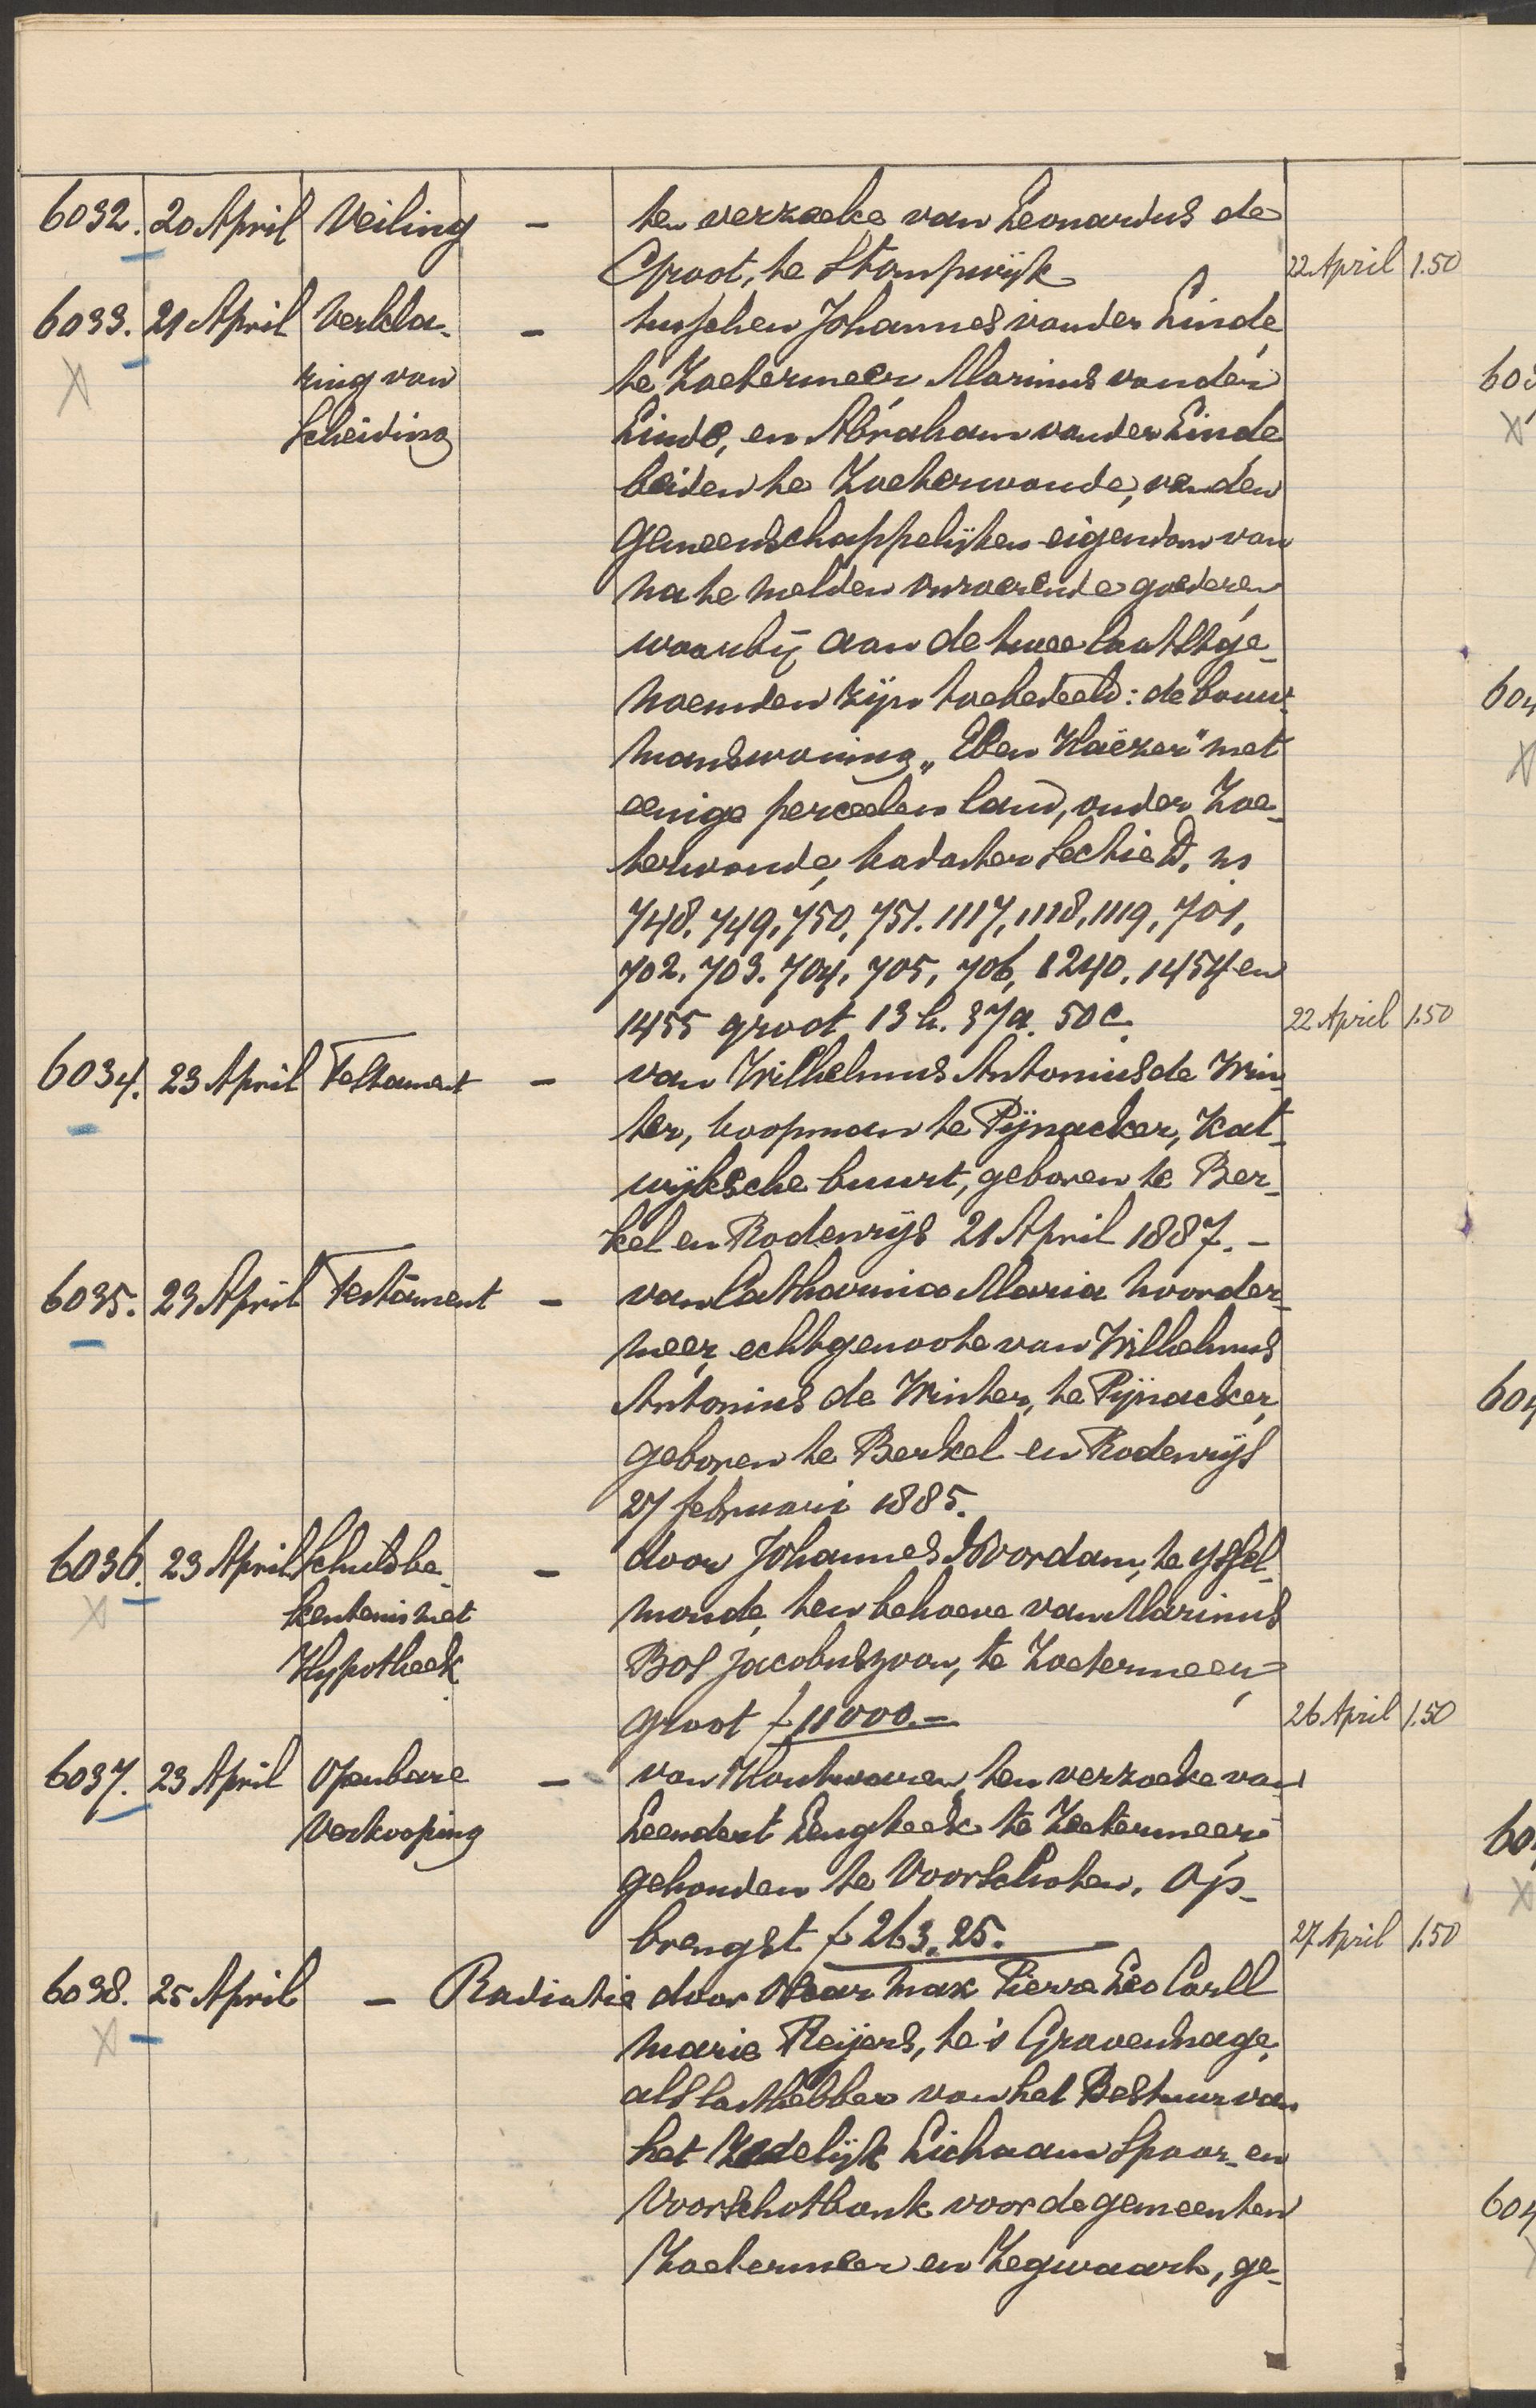 6032. 20 April Veiling - ten verzoeke van Leonardus de
Groot, te Stompwijk 22 April 1.50
6033. 21 April Verkla- - tusschen Johannes van der Linde,
ring van te Zoetermeer, Marinus van der
Scheiding Linde, en Abraham van der Linde
beiden te Zoeterwoude, van den
gemeenschappelijken eigendom van
na te melden onroerende goederen,
waarbij aan de twee laatstge-
noemden zijn toebedeeld: de bouw-
manswoning "Eben Haëzer" met
eenige perceelen land, onder Zoe-
terwoude, kadaster Sectie D, no
748, 749, 750, 751, 1117, 1118, 1119, 701,
702, 703, 704, 705, 706, 1240, 1454 en
1455 groot 13 h. 37 a. 50 c. 22 April 1.50
6034. 23 April Testament - van Wilhelmus Antonius de Win-
ter, koopman te Pijnacker, Kat-
wijksche buurt, geboren te Ber-
kel en Rodenrijs 21 April 1887. -
6035. 23 April Testament - van Catharina Maria Noorder-
meer, echtgenoote van Wilhelmus
Antonius de Winter, te Pijnacker,
geboren te Berkel en Rodenrijs
27 februari 1885.
6036. 23 April Schuldbe- - door Johannes Noordam, te ysfel-
kentenis met monde, ten behoeve van Marinus
Hypotheek Bos Jacobuszoon, te Zoetermeer,
groot f 11000.- 26 April 1.50
6037. 23 April Openbare - van Houtwaren, ten verzoeke van
Verkooping Leendert Lengkeek te Zoetermeer,
gehouden te Voorschoten. Op-
brengst f 263.25. 27 April 1.50
6038. 25 April - Radiatie door Oscar Max Pierre Leo Carll
Marie Reijers, te 's Gravenhage,
als lasthebber van het Bestuur van
het Zedelijk Lichaam Spaar- en
Voorschotbank voor de gemeenten
Zoetermeer en Zegwaart, ge-